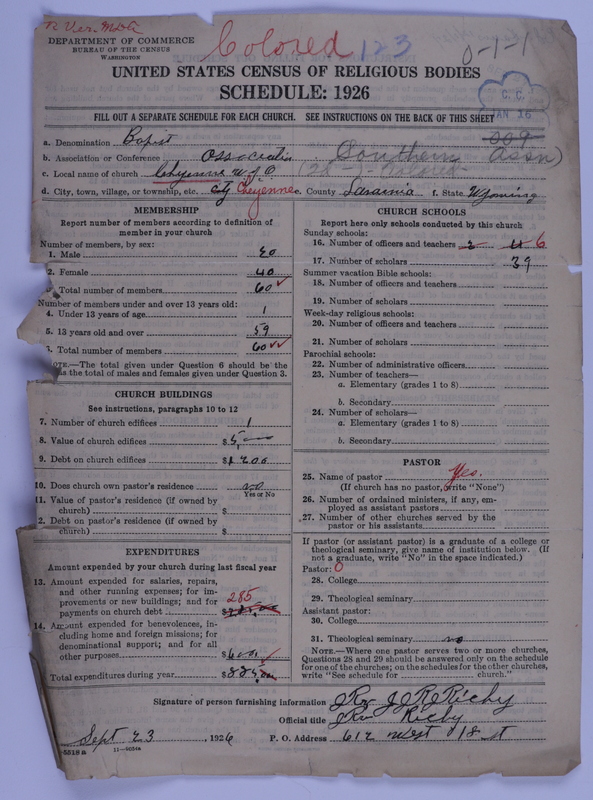 DEPARTMENT OF COMMERCE
BUREAU OF THE CENSUS
WASHINGTON
Colored 123
0-1-1
UNITED STATES CENSUS OF RELIGIOUS BODIES
SCHEDULE: 1926
C. C.
JAN 16
FILL OUT A SEPARATE SCHEDULE FOR EACH CHURCH. SEE INSTRUCTIONS ON THE BACK OF THIS SHEET
009
a. Denomination Bapist
b. Association or Conference Southern Assn)
c. Local name of church Cheyenne
d. City, town, village, or township, etc. city Cheyenne e. County Laramia f. State Wyoming
MEMBERSHIP
Report number of members according to definition of
member in your church
Number of members, by sex:
1. Male 20
2. Female 40
Total number of members 60
Number of members under and over 13 years old:
4. Under 13 years of age 1
5. 13 years old and over 59
Total number of members 60
NOTE.—The total given under Question 6 should be the
as the total of males and females given under Question 3.
CHURCH BUILDINGS
See instructions, paragraphs 10 to 12
7. Number of church edifices 1
8. Value of church edifices $5,000
9. Debt on church edifices $1200
10. Does church own pastor's residence no
Yes or No
11. Value of pastor's residence (if owned by
church) $
2. Debt on pastor's residence (if owned by
church) $
EXPENDITURES
Amount expended by your church during last fiscal year
13. Amount expended for salaries, repairs,
and other running expenses; for im-
provements or new buildings; and for 285
payments on church debt $
14. Amount expended for benevolences, in-
cluding home and foreign missions; for
denominational support; and for all
other purposes $
Total expenditures during year $
CHURCH SCHOOLS
Report here only schools conducted by this church
Sunday schools:
16. Number of officers and teachers 6
17. Number of scholars 39
Summer vacation Bible schools:
18. Number of officers and teachers
19. Number of scholars
Week-day religious schools:
20. Number of officers and teachers
21. Number of scholars
Parochial schools:
22. Number of administrative officers
23. Number of teachers—
a. Elementary (grades 1 to 8)
b. Secondary
24. Number of scholars—
a. Elementary (grades 1 to 8)
b. Secondary
PASTOR
25. Name of pastor Yes.
(If church has no pastor, write "None")
26. Number of ordained ministers, if any, em-
ployed as assistant pastors
27. Number of other churches served by the
pastor or his assistants
If pastor (or assistant pastor) is a graduate of a college or
theological seminary, give name of institution below. (If
not a graduate, write "No" in the space indicated.)
Pastor: 0
28. College
29. Theological seminary
Assistant pastor:
30. College
31. Theological seminary no
NOTE.—Where one pastor serves two or more churches,
Questions 28 and 29 should be answered only on the schedule
for one of the churches; on the schedules for the other churches,
write "See schedule for church."
Signature of person furnishing information Rev J R Richy
Official title Rev Richy
Sept 23, 1926 P. O. Address 612 West 18 st
11-9034a